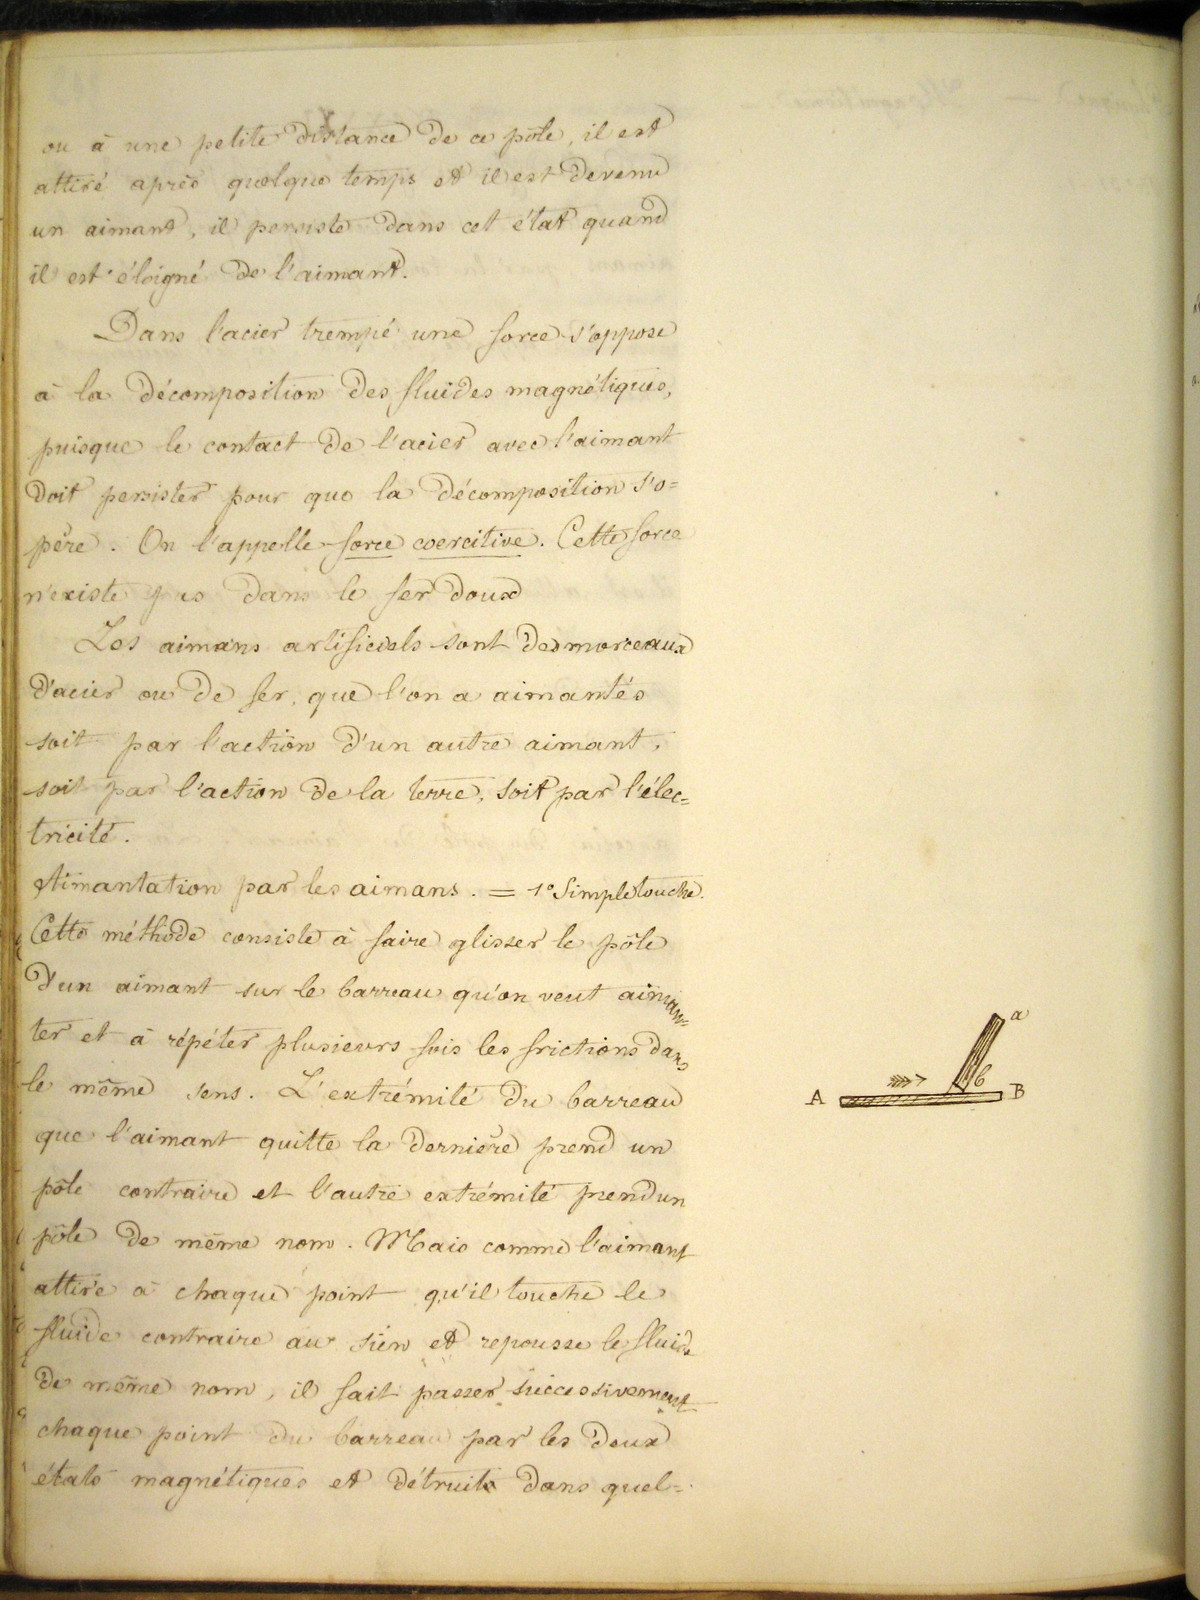 ou à une petite distance de ce pôle, il est
attiré après quelque temps et il est devenu
un aimant, il persiste dans cet état quand
il est éloigné de l'aimant.
Dans l'acier trempé une force s'oppose
à la décomposition des fluides magnétiques,
puisque le contact de l'acier avec l'aimant
doit persister pour que la décomposition s'o=
père. On l'appelle force coercitive. Cette force
n'existe pas dans le fer doux
Les aimans artificiels sont des morceaux
d'acier ou de fer, que l'on a aimantés
soit par l'action d'un autre aimant,
soit par l'action de la terre, soit par l'élec=
tricité.
Aimantation par les aimans. = 1° Simple touche.
Cette méthode consiste à faire glisser le pôle
d'un aimant sur le barreau qu'on veut aiman=
ter et à répéter plusieurs fois les frictions dans
le même sens. L'extrémité du barreau
que l'aimant quitte la dernière prend un
pôle contraire et l'autre extrémité prend un
pôle de même nom. Mais comme l'aimant
attire à chaque point qu'il touche le
fluide contraire au sien et repousse le fluide
de même nom, il fait passer successivement
chaque point du barreau par les deux
états magnétiques et détruit dans quel=
a
b
A
B